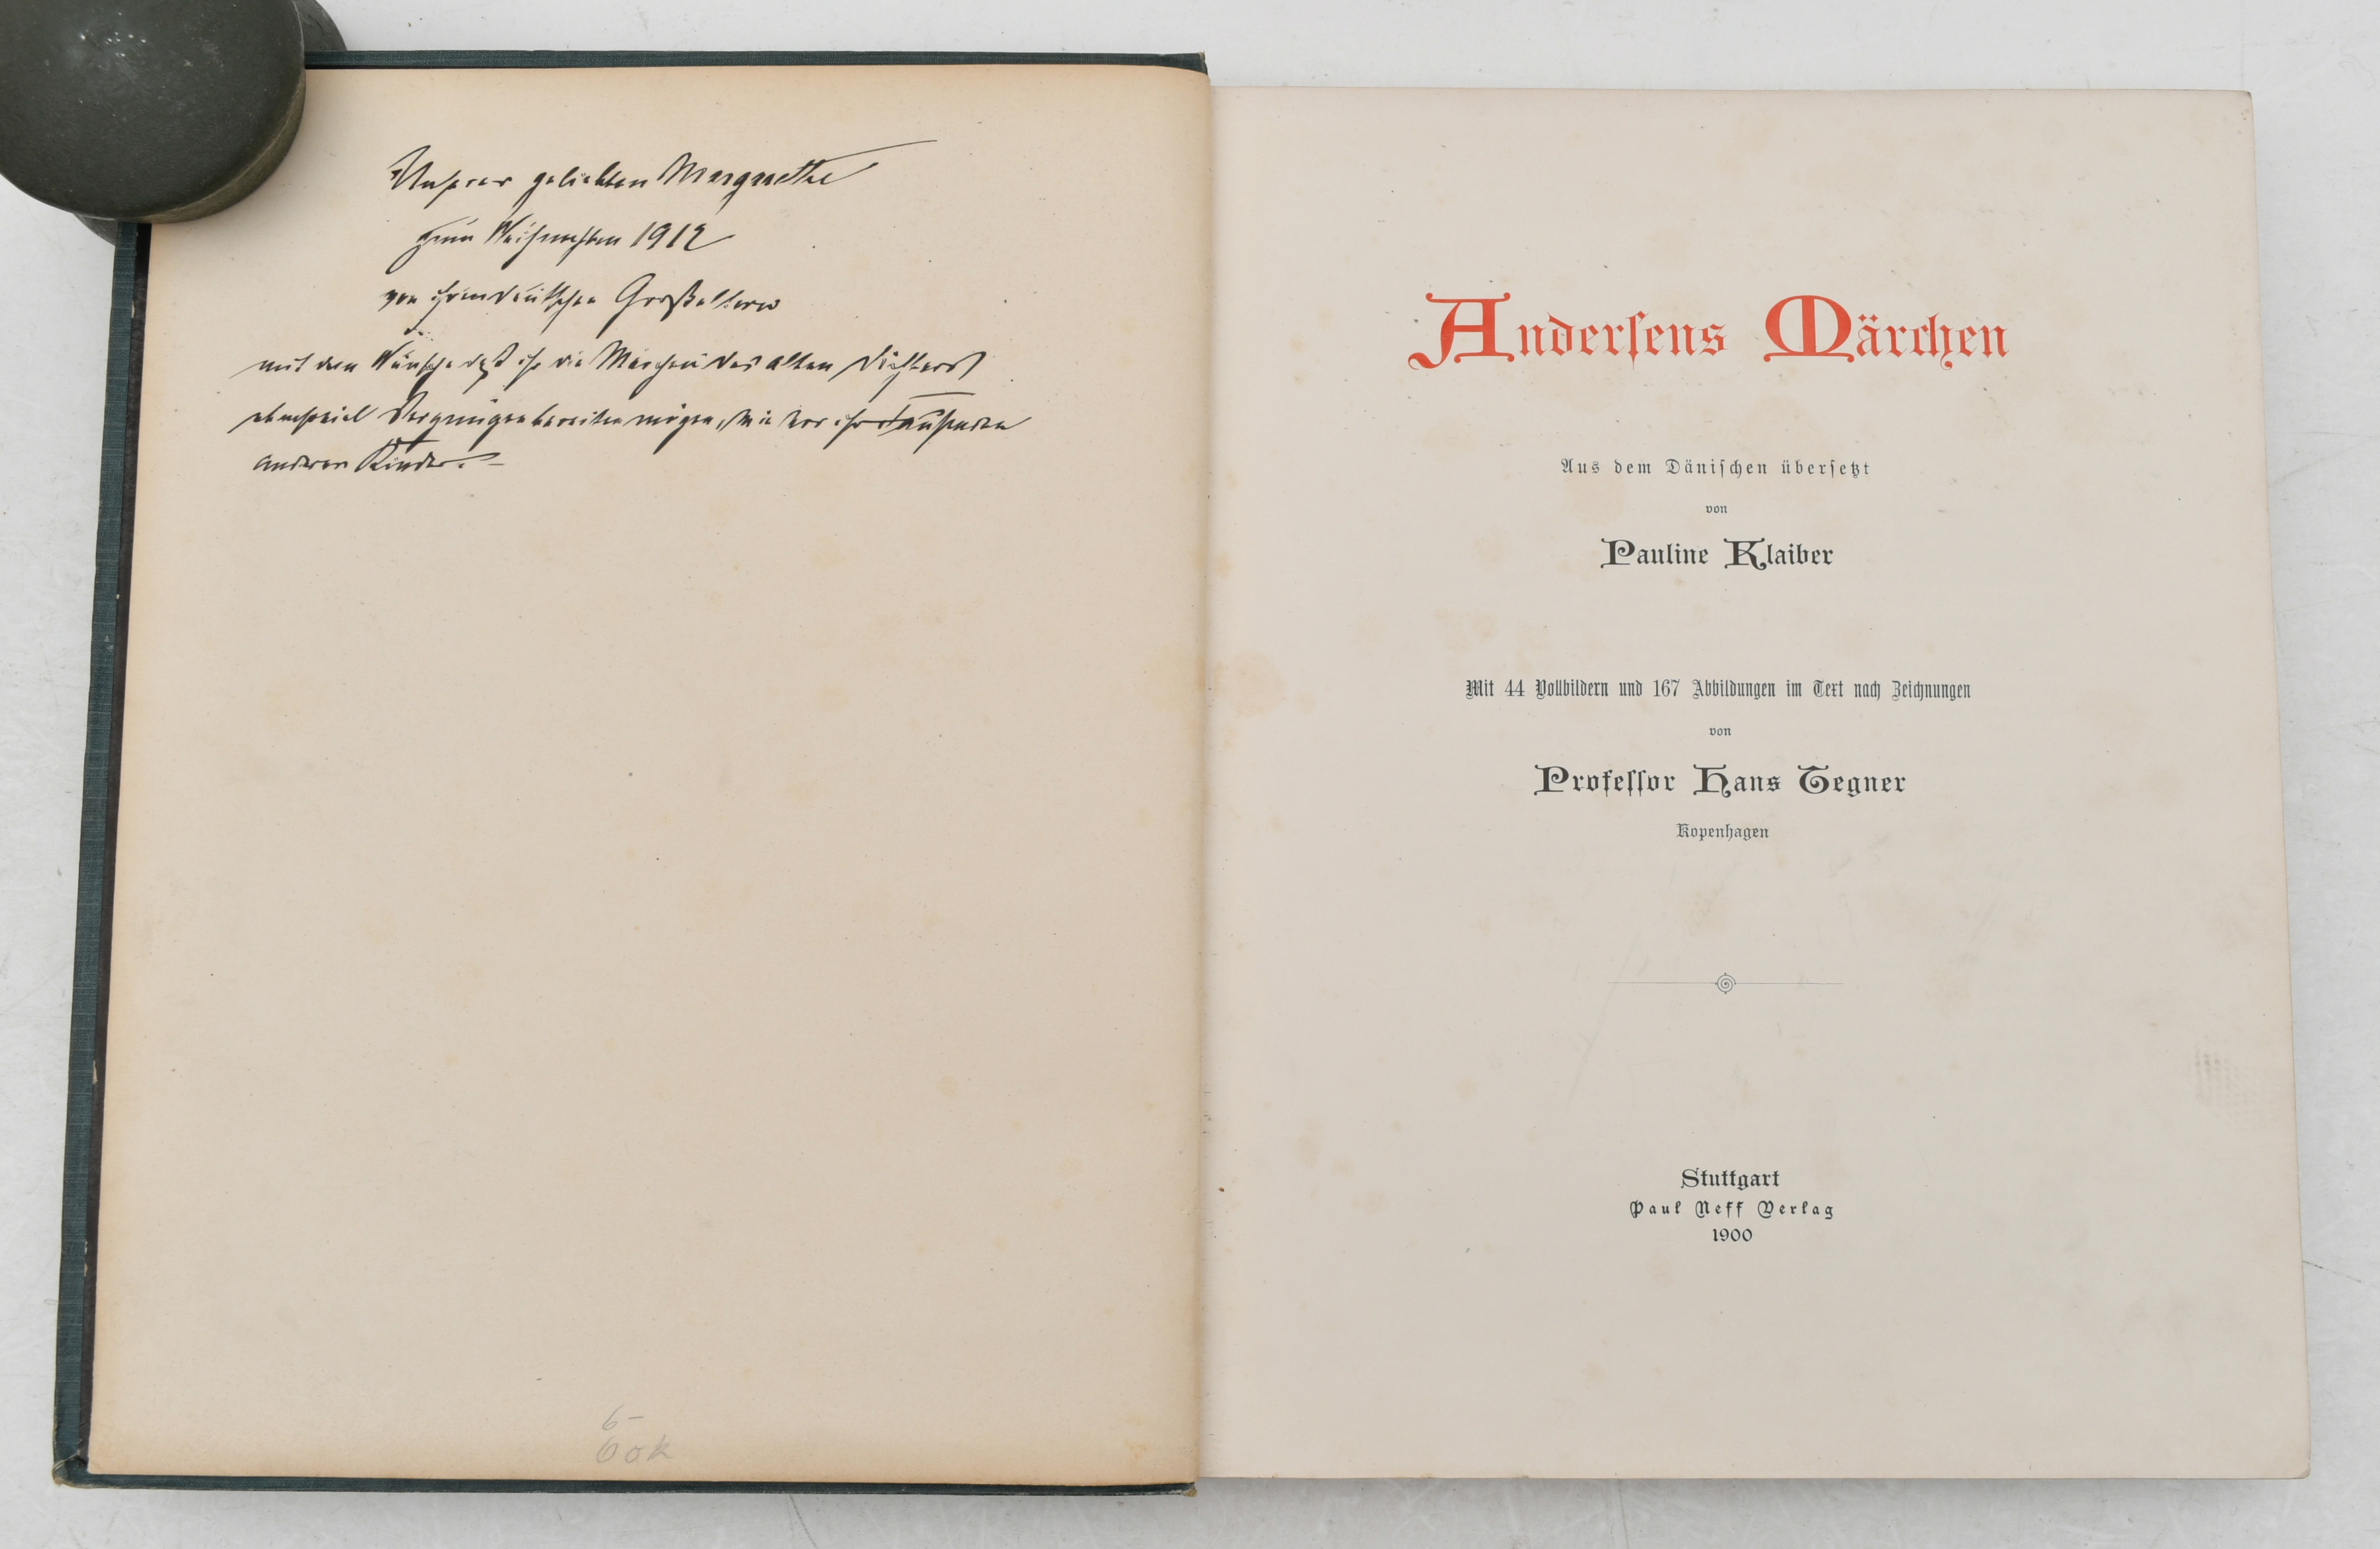 Unserer geliebten Margarethe
zum Weihnachten 1912
von ihren deutschen Großeltern
mit dem Wunsche daß ihr die Märchen des alten Dichters
ebensoviel Vergnügen bereiten mögen, wie vor ihr Tausenden
anderer Kinder.
6-
60k
Andersens Märchen
Aus dem Dänischen übersetzt
von
Pauline Klaiber
Mit 44 Vollbildern und 167 Abbildungen im Text nach Zeichnungen
von
Professor Hans Tegner
Kopenhagen
Stuttgart
Paul Neff Verlag
1900